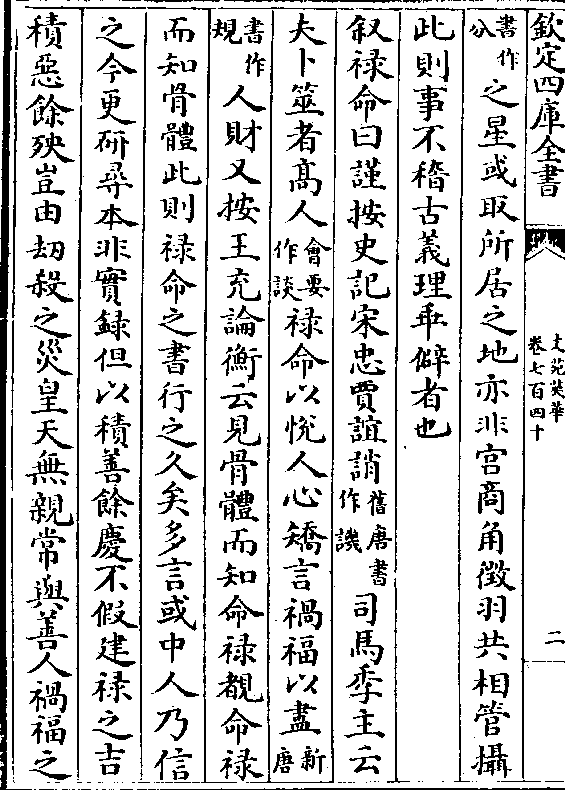 欽定四庫全書
文苑英華
卷七百四十
二
書作分之星或取所居之地亦非宫商角徵羽共相管攝
此則事不稽古義理乖僻者也
叙禄命曰謹按史記宋忠賈誼誚舊唐書作譏司馬季主云
夫卜筮者髙人會要作談禄命以悦人心矯言禍福以盡新唐
書作規人財又按王充論衡云見骨體而知命禄覩命禄
而知骨體此則禄命之書行之久矣多言或中人乃信
之今更研尋本非實録但以積善餘慶不假建禄之吉
積惡餘殃豈由刧殺之災皇天無親常與善人禍福之